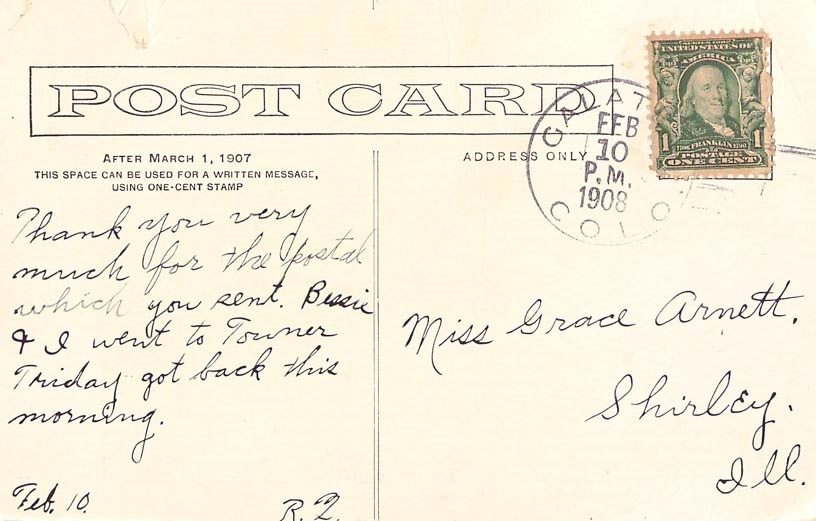 POST CARD
AFTER MARCH 1, 1907
THIS SPACE CAN BE USED FOR A WRITTEN MESSAGE,
USING ONE-CENT STAMP
Thank you very
much for the postal
which you sent. Bessie
& I went to Towner
Friday got back this
morning.
Feb. 10.
ADDRESS ONLY
FEB
10
P.M.
1908
COLO
SERIES 1902
UNITED STATES OF
AMERICA
1 1
FRANKLIN
POSTAGE
ONE CENT
Miss Grace Arnett.
Shirley.
Ill.